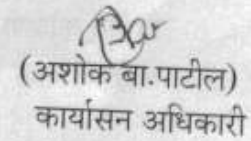 (अशोक बा.पाटील)
कार्यासन अधिकारी